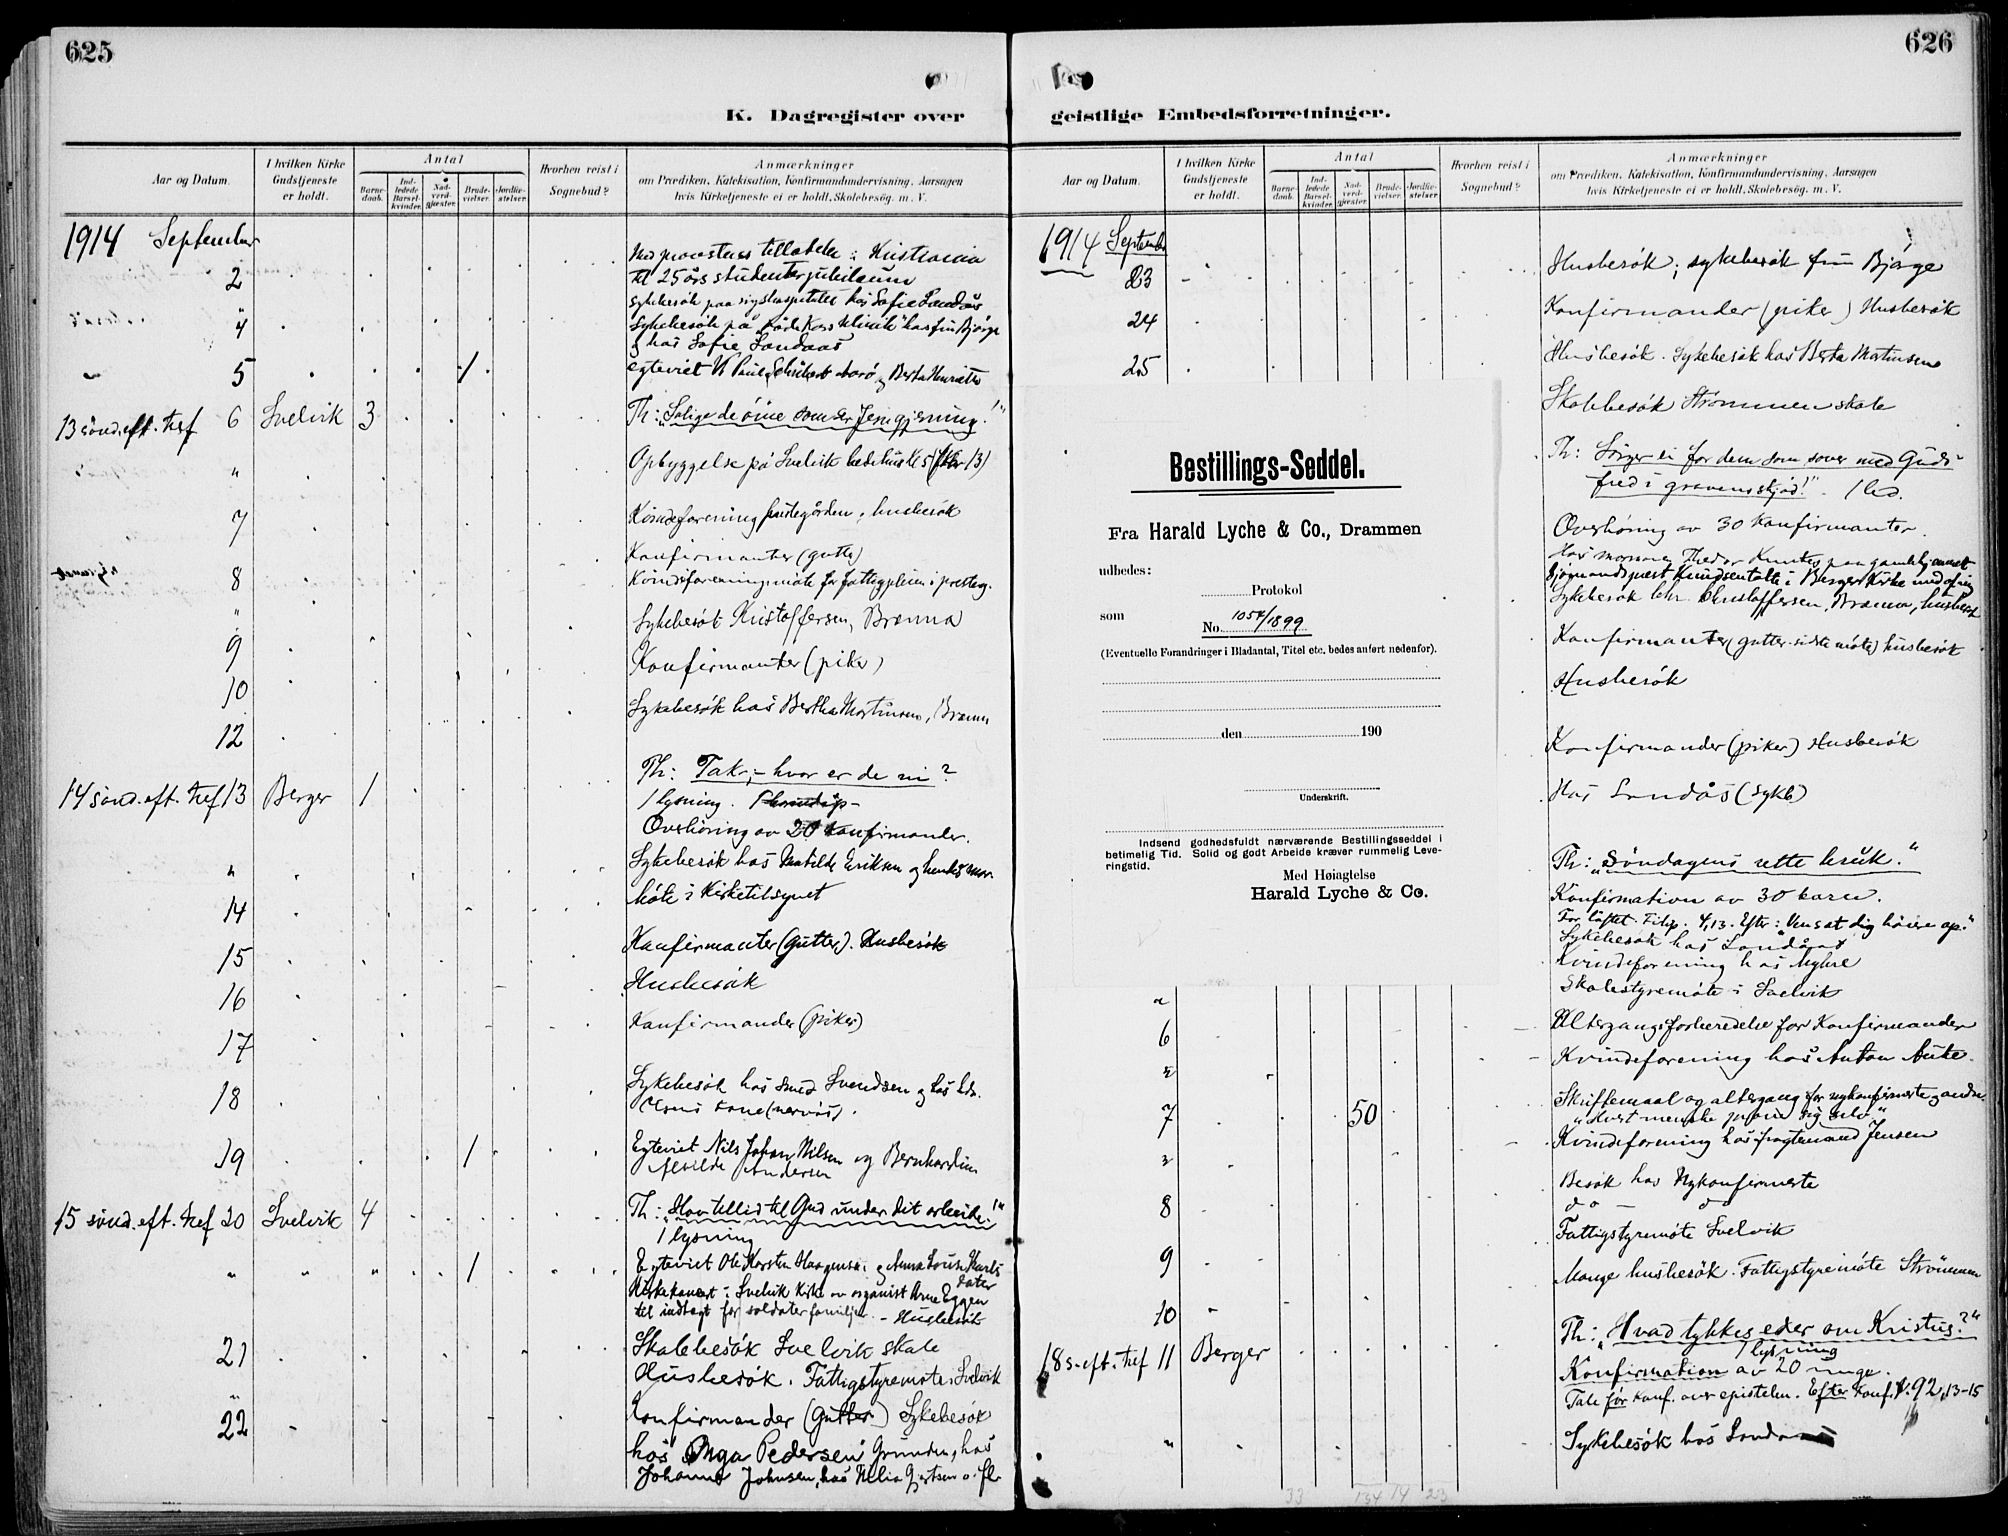 625
K. Dagregister over
Aar og Datum.
I hvilken Kirke Gudstjeneste er holdt.
Antal
Barnedaab.
Indledede Barselkvinder.
Nadverdgjæster.
Brudevielser.
Jordfæstelser.
Hvorhen reist i Sognebud?
Anmærkninger
om Prædiken, Katekisation, Konfirmandundervisning, Aarsagen
hvis Kirketjeneste ei er holdt, Skolebesøg. m. V.
1914 September
2 Med provstens tilladelse i Kristiania
til 25 års studenterjubilæum
sykebesök paa rigshospitalet hos Sofie Landås
4 Sykebesök på Röde Kors Klinik hos fru Bjørge
og hos Sofie Landaas
5 1 egteviet
13 sönd. eft. tref 6 Svelvik 3 Th: "Salige de öine som ser Jeru gjerning!"
" Opbyggelse på Svelvik bedehus Kl 5
7 Kvindeforening prestegården; husbesök
Konfirmanter (gutter)
8 Kvindeforeningsmöte for fattigpleien i presteg.
" Sykebesök Kristoffersen, Brenna
9 Konfirmanter (piker)
10 Sykebesök hos Bertha Martinsen, Brenna
12
14 sönd. eft. tref 13 Berger 1 Th: Takr, - hvor er de ni?
1 lysning.
Overhöring av 20 konfirmander.
" Sykebesök hos Matilde Eriksen og hendes mor.
14 Möte i Kirketilsynet
15 Konfirmanter (gutter). Husbesök
16 Husbesök
17 Konfirmander (piker)
18 Sykebesök hos smed Svendsen og hos
19 1 Egteviet Nils Johan Nilsen og Bernhardine
Alvilde Andersen
15 sönd. eft. tref 20 Svelvik 4 Th: "Hav tillid til Gud under dit arbeide!"
1 lysning
" " " 1 Egteviet Ole Karsten Haagensen og Anna Louise Karls
dater
Kirkekonsert i Svelvik Kirke av organist Arne Eggen
til indtægt for soldaterfamilier. - Husbesök
21 Skolebesök Svelvik skole
" Husbesök. Fattigstyremöte i Svelvik
22 Konfirmander (Gutter) Sykebesök
hos Inga Pedersen Grunden, hos
Johanne Johnsen, hos
626
geistlige Embedsforretninger.
Aar og Datum.
I hvilken Kirke Gudstjeneste er holdt.
Antal
Barnedaab.
Indledede Barselkvinder.
Nadverdgjæster.
Brudevielser.
Jordfæstelser.
Hvorhen reist i Sognebud?
Anmærkninger
om Prædiken, Katekisation, Konfirmandundervisning, Aarsagen
hvis Kirketjeneste ei er holdt, Skolebesøg. m. V.
1914 Septemb
23 Husbesök; sykebesök fru Bjørge
24 Konfirmander (piker) Husbesök
25 Husbesök. Sykebesök hos Berta Martinsen
Skolebesök Strömmen skole
Bestillings-Seddel.
Fra Harald Lyche & Co., Drammen
udbedes:
Protokol
som
No. 1054/1899
(Eventuelle Forandringer i Bladantal, Titel etc. bedes anført nedenfor).
den 190
Underskrift.
Indsend godhedsfuldt nærværende Bestillingsseddel i
betimelig Tid. Solid og godt Arbeide kræver rummelig Leve-
ringstid.
Med Høiagtelse
Harald Lyche & Co.
Th: Sörger ei for dem som sover med Guds-
fred i gravens skjöd!" 1 lvs.
Overhöring av 30 Konfirmanter.
Konfirmanter (gutter sidste möte) husbesök
Husbesök
Konfirmander (piker) Husbesök
Hos Landås (sykb)
Th: "Söndagens rette bruk."
Konfirmation av 30 barn.
For löftet: Filip. 4,13. Efter: Venset dig höiere op."
Sykebesök hos Landaas
Kvindeforening hos Myhre
" Skolestyremöte i Svelvik
6 Altergangsforberedelse for Konfirmander
" Kvindeforening hos Anton Auke.
7 50 Skriftemaal og altergang for nykonfirmerte og andre.
"Hvert menneske pröve sig selv"
" Kvindeforening hos fragtemand Jensen
8 Besök hos Nykonfirmerte
do - do
9 Fattigstyremöte Svelvik
10 Mange husbesök. Fattigstyremöte Strömmen
18 s. eft. tref 11 Berger Th: "Hvad tykkes eder om Kristus?"
1 lysning
Konfirmation av 20 unge.
Tale för konf. over epistelen. Efter konf. 92, 13-15
" Sykebesök hos Landaas
33 134 14 23